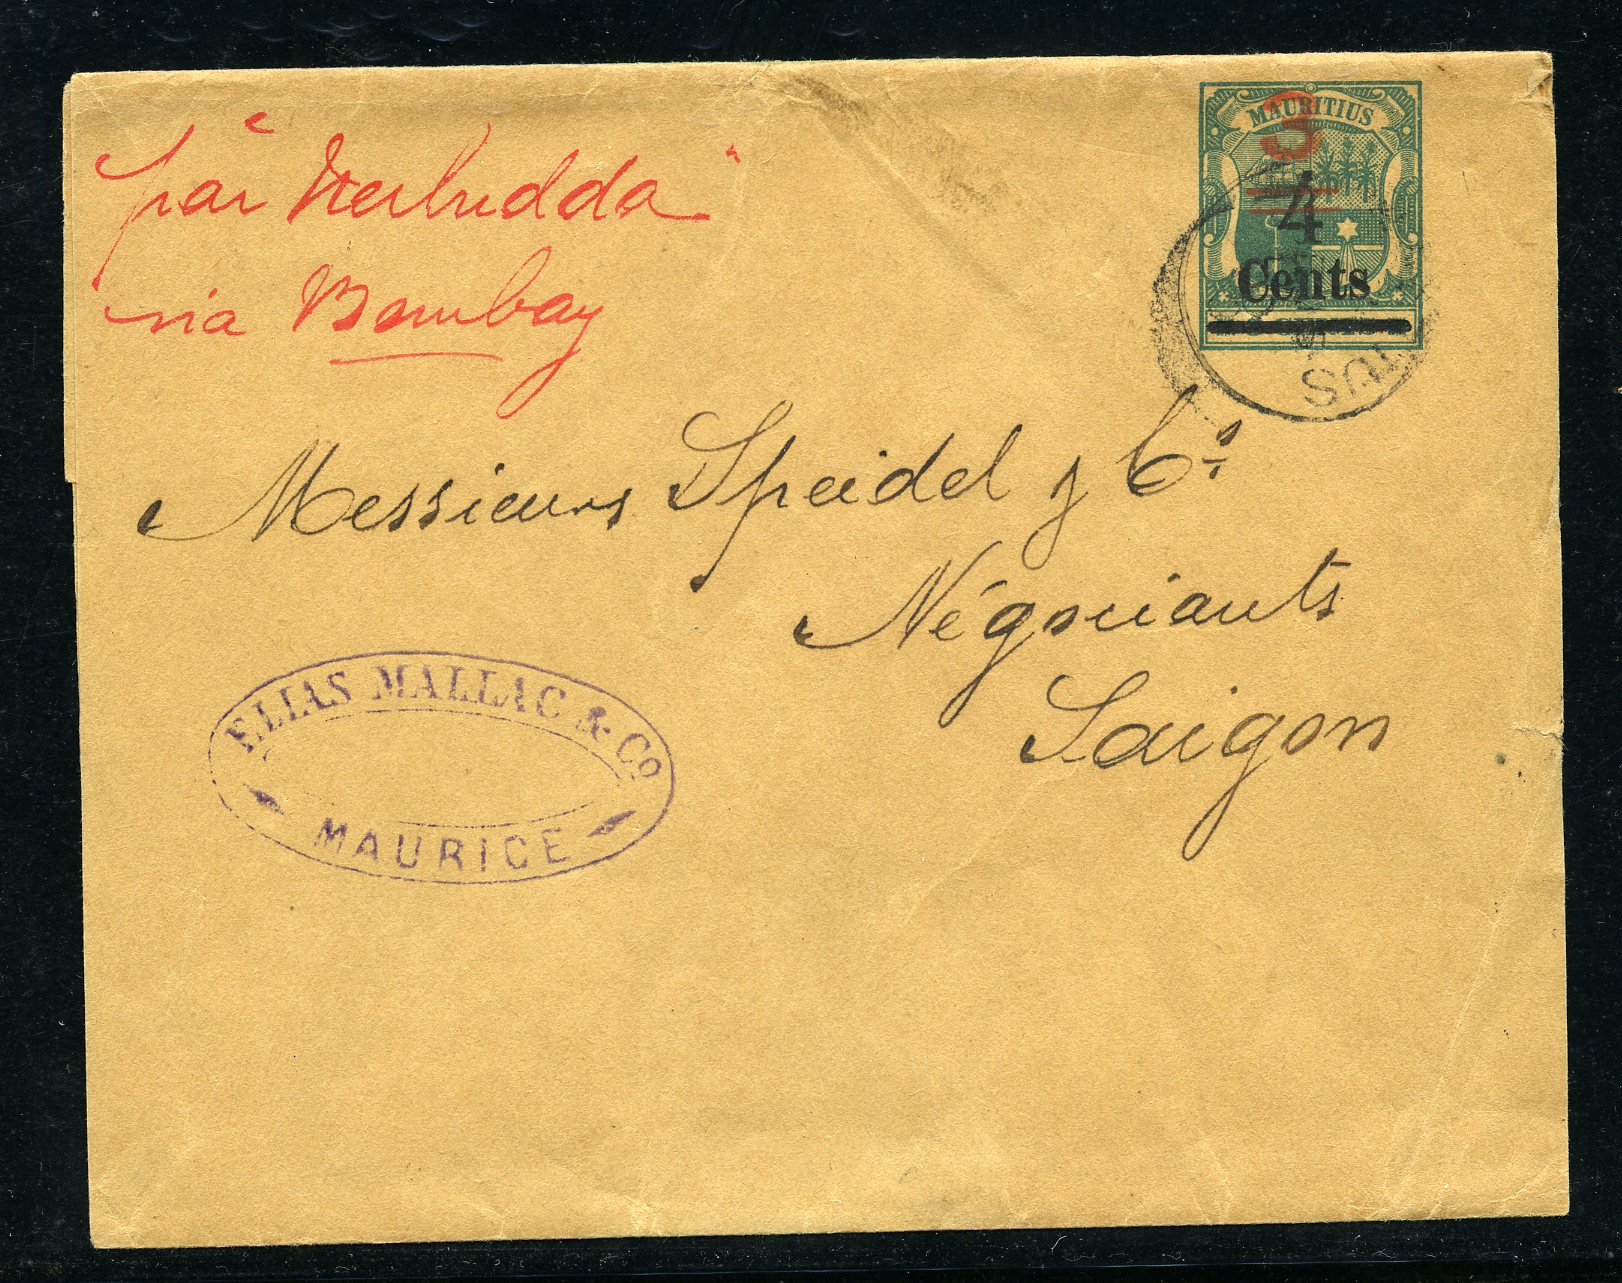 par "Nerbudda"
via Bombay
MAURITIUS
3
4
Cents
Messieurs Speidel & Co.
Négociants
Saigon
ELIAS MALLAC & Co
MAURICE